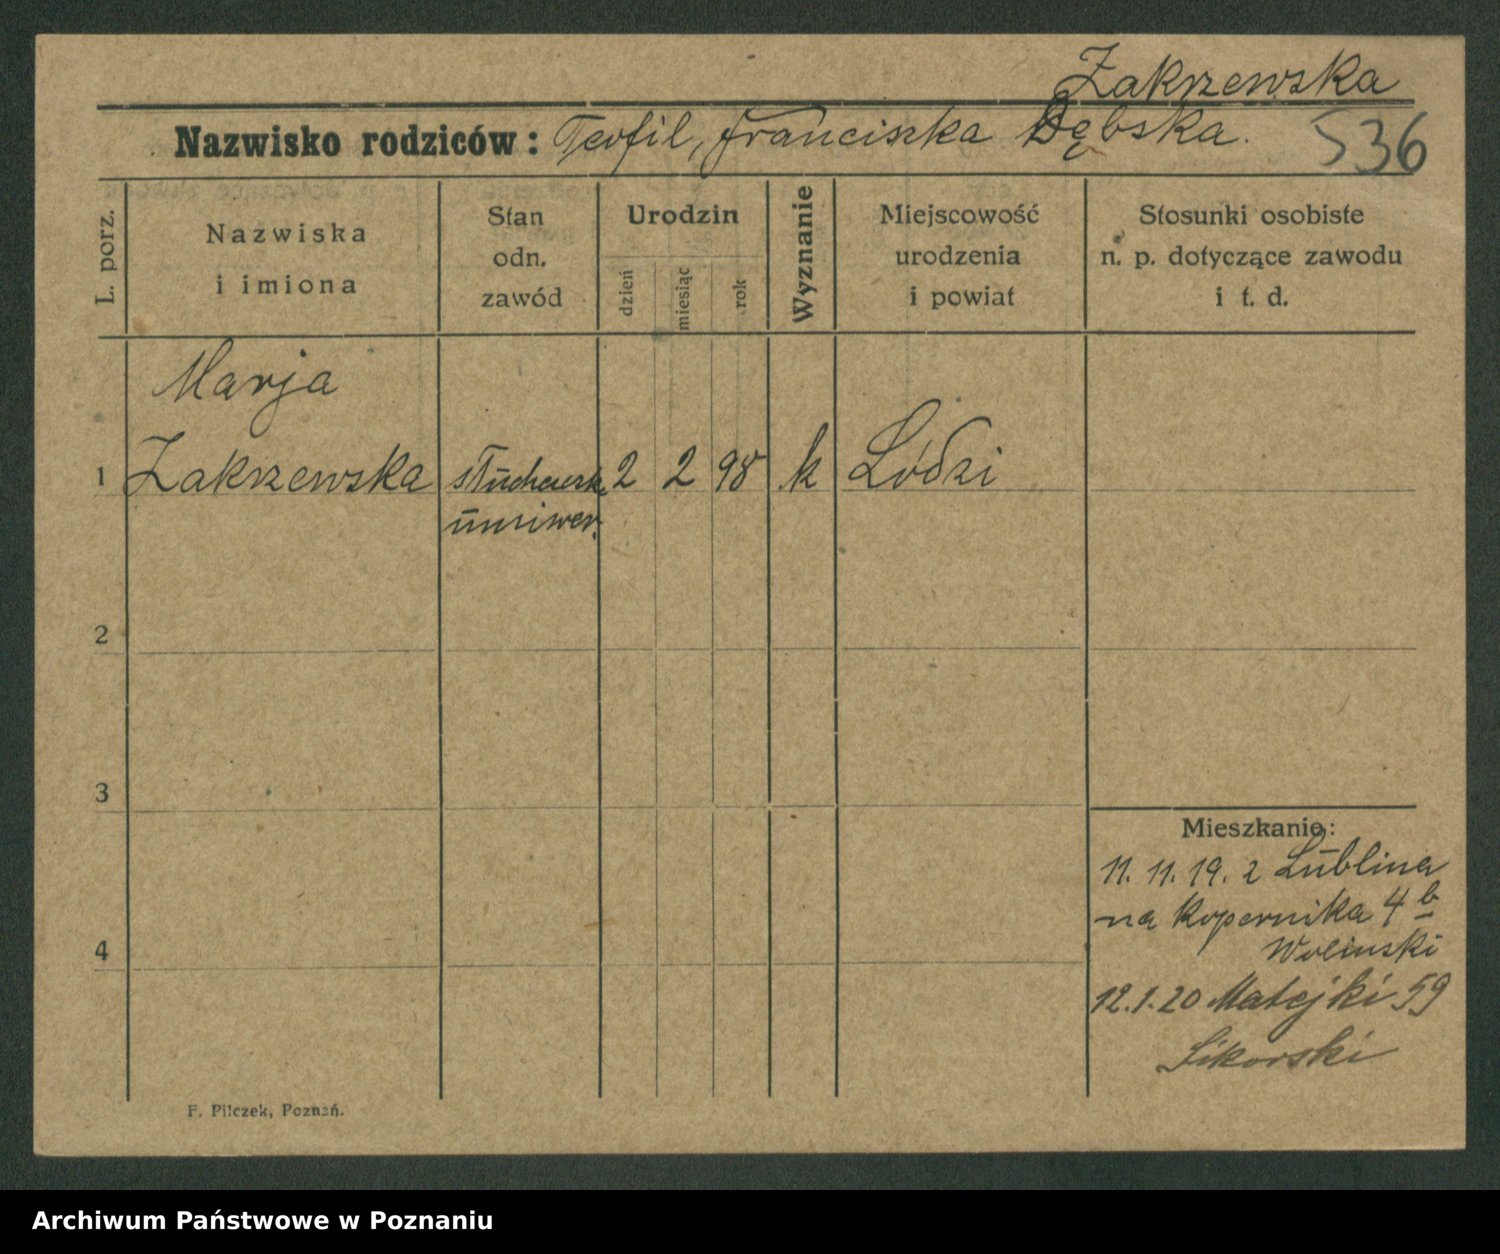 Zakrzewska
Nazwisko rodziców: Teofil, Franciszka Dębska. 536
L. porz.
Nazwiska
i imiona
Stan
odn.
zawód
Urodzin
dzień
miesiąc
rok
Wyznanie
Miejscowość
urodzenia
i powiat
Stosunki osobiste
n. p. dotyczące zawodu
i t. d.
Marja
1 Zakrzewska słuchaczk. 2 2 98 k Łódzi
uniwer.
2
3
4
Mieszkanie:
11. 11. 19. z Lublina
na Kopernika 4 b
Woliński
12.1.20 Matejki 59
Sikorski
F. Pilczek, Poznań.
Archiwum Państwowe w Poznaniu